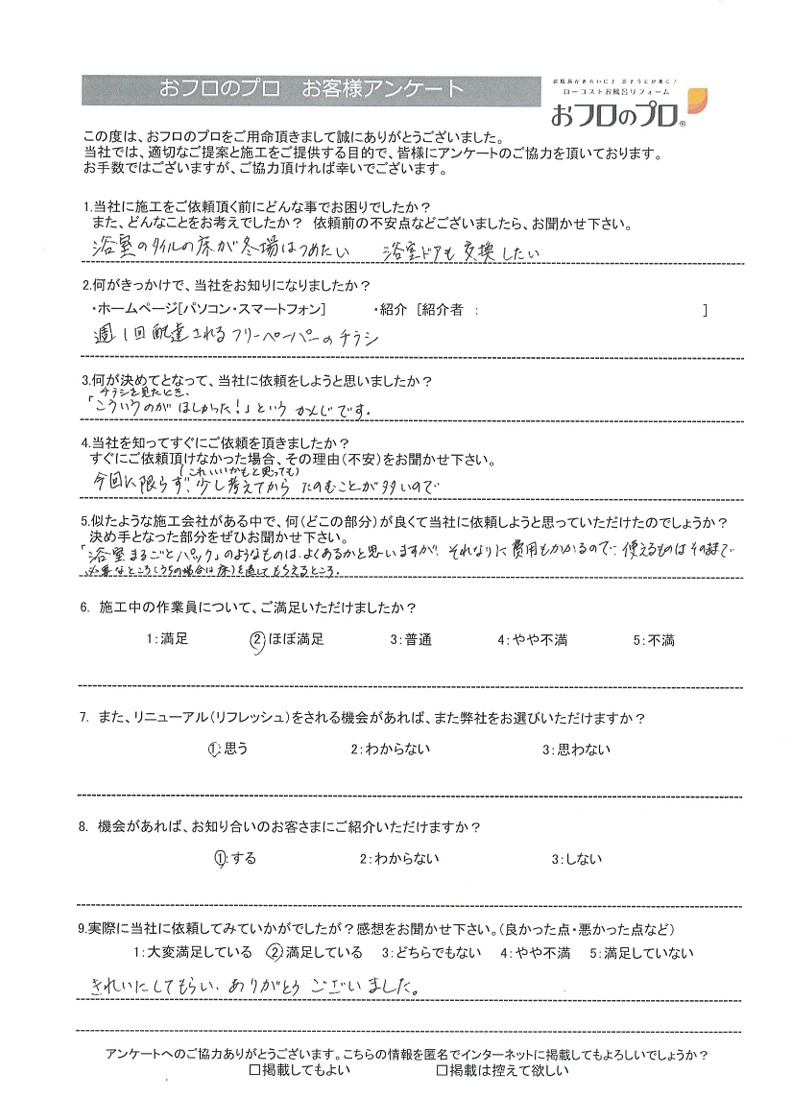 おフロのプロ　お客様アンケート
ローコストお風呂リフォーム
おフロのプロ®
この度は、おフロのプロをご用命頂きまして誠にありがとうございました。
当社では、適切なご提案と施工をご提供する目的で、皆様にアンケートのご協力を頂いております。
お手数ではございますが、ご協力頂ければ幸いでございます。
1.当社に施工をご依頼頂く前にどんな事でお困りでしたか？
また、どんなことをお考えでしたか？ 依頼前の不安点などございましたら、お聞かせ下さい。
浴室のタイルの床が冬場はつめたい　浴室ドアも交換したい
2.何がきっかけで、当社をお知りになりましたか？
・ホームページ[パソコン・スマートフォン]　・紹介 [紹介者 :　]
週1回配達されるフリーペーパーのチラシ
3.何が決めてとなって、当社に依頼をしようと思いましたか？
チラシを見たとき、
「こういうのがほしかった！」という かんじです。
4.当社を知ってすぐにご依頼を頂きましたか？
すぐにご依頼頂けなかった場合、その理由（不安）をお聞かせ下さい。
(これいいかもと思っても)
今回に限らず、少し考えてから たのむことが多いので
5.似たような施工会社がある中で、何（どこの部分）が良くて当社に依頼しようと思っていただけたのでしょうか？
決め手となった部分をぜひお聞かせ下さい。
「浴室まるごとパック」のようなものは、よくあるかと思いますが、それなりに費用もかかるので、使えるものはその話で
必要なところ(うちの場合は床)を直してもらえるところ。
6. 施工中の作業員について、ご満足いただけましたか？
1:満足　②:ほぼ満足　3:普通　4:やや不満　5:不満
7. また、リニューアル（リフレッシュ）をされる機会があれば、また弊社をお選びいただけますか？
①:思う　2:わからない　3:思わない
8. 機会があれば、お知り合いのお客さまにご紹介いただけますか？
①:する　2:わからない　3:しない
9.実際に当社に依頼してみていかがでしたが？感想をお聞かせ下さい。（良かった点・悪かった点など）
1:大変満足している　②:満足している　3:どちらでもない　4:やや不満　5:満足していない
きれいにしてもらい、ありがとう ございました。
アンケートへのご協力ありがとうございます。こちらの情報を匿名でインターネットに掲載してもよろしいでしょうか？
□掲載してもよい　□掲載は控えて欲しい